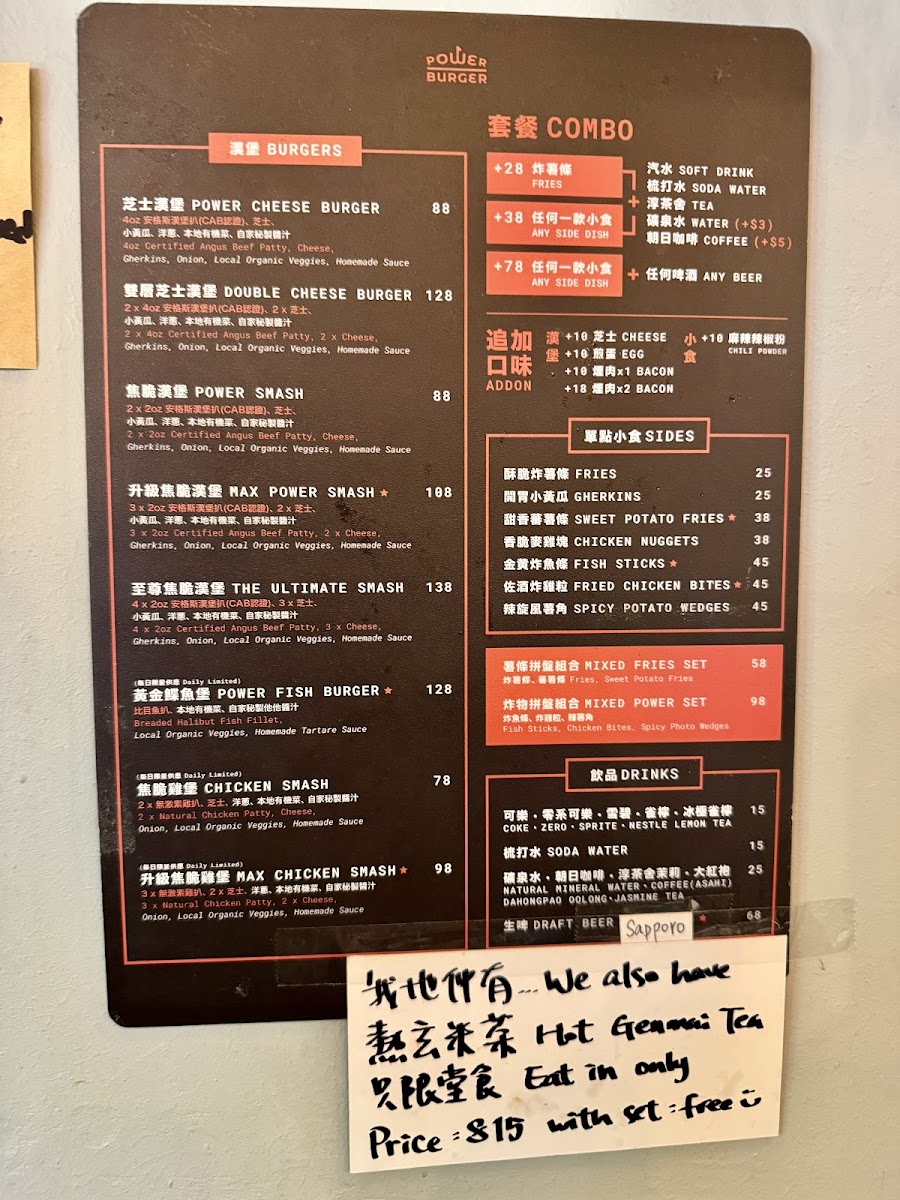 POWER
BURGER
漢堡 BURGERS
芝士漢堡 POWER CHEESE BURGER 88
4oz 安格斯漢堡扒(CAB認證)、芝士、
小黃瓜、洋蔥、本地有機菜、自家秘製醬汁
4oz Certified Angus Beef Patty, Cheese,
Gherkins, Onion, Local Organic Veggies, Homemade Sauce
雙層芝士漢堡 DOUBLE CHEESE BURGER 128
2 x 4oz 安格斯漢堡扒(CAB認證)、2 x 芝士、
小黃瓜、洋蔥、本地有機菜、自家秘製醬汁
2 x 4oz Certified Angus Beef Patty, 2 x Cheese,
Gherkins, Onion, Local Organic Veggies, Homemade Sauce
焦脆漢堡 POWER SMASH 88
2 x 2oz 安格斯漢堡扒(CAB認證)、芝士、
小黃瓜、洋蔥、本地有機菜、自家秘製醬汁
2 x 2oz Certified Angus Beef Patty, Cheese,
Gherkins, Onion, Local Organic Veggies, Homemade Sauce
升級焦脆漢堡 MAX POWER SMASH ★ 108
3 x 2oz 安格斯漢堡扒(CAB認證)、2 x 芝士、
小黃瓜、洋蔥、本地有機菜、自家秘製醬汁
3 x 2oz Certified Angus Beef Patty, 2 x Cheese,
Gherkins, Onion, Local Organic Veggies, Homemade Sauce
至尊焦脆漢堡 THE ULTIMATE SMASH 138
4 x 2oz 安格斯漢堡扒(CAB認證)、3 x 芝士、
小黃瓜、洋蔥、本地有機菜、自家秘製醬汁
4 x 2oz Certified Angus Beef Patty, 3 x Cheese,
Gherkins, Onion, Local Organic Veggies, Homemade Sauce
(每日限量供應 Daily Limited)
黃金鰈魚堡 POWER FISH BURGER ★ 128
比目魚扒、本地有機菜、自家秘製他他醬汁
Breaded Halibut Fish Fillet,
Local Organic Veggies, Homemade Tartare Sauce
(每日限量供應 Daily Limited)
焦脆雞堡 CHICKEN SMASH 78
2 x 無激素雞扒、芝士、洋蔥、本地有機菜、自家秘製醬汁
2 x Natural Chicken Patty, Cheese,
Onion, Local Organic Veggies, Homemade Sauce
(每日限量供應 Daily Limited)
升級焦脆雞堡 MAX CHICKEN SMASH ★ 98
3 x 無激素雞扒、2 x 芝士、洋蔥、本地有機菜、自家秘製醬汁
3 x Natural Chicken Patty, 2 x Cheese,
Onion, Local Organic Veggies, Homemade Sauce
套餐 COMBO
+28 炸薯條
FRIES
+38 任何一款小食
ANY SIDE DISH
+
汽水 SOFT DRINK
梳打水 SODA WATER
淳茶舍 TEA
礦泉水 WATER (+$3)
朝日咖啡 COFFEE (+$5)
+78 任何一款小食
ANY SIDE DISH
+ 任何啤酒 ANY BEER
追加
口味
ADDON
漢堡
+10 芝士 CHEESE
+10 煎蛋 EGG
+10 煙肉x1 BACON
+18 煙肉x2 BACON
小食
+10 麻辣辣椒粉
CHILI POWDER
單點小食 SIDES
酥脆炸薯條 FRIES 25
開胃小黃瓜 GHERKINS 25
甜香蕃薯條 SWEET POTATO FRIES ★ 38
香脆麥雞塊 CHICKEN NUGGETS 38
金黃炸魚條 FISH STICKS ★ 45
佐酒炸雞粒 FRIED CHICKEN BITES ★ 45
辣旋風薯角 SPICY POTATO WEDGES 45
薯條拼盤組合 MIXED FRIES SET 58
炸薯條、蕃薯條 Fries, Sweet Potato Fries
炸物拼盤組合 MIXED POWER SET 98
炸魚條、炸雞粒、辣薯角
Fish Sticks, Chicken Bites, Spicy Photo Wedges
飲品 DRINKS
可樂・零系可樂・雪碧・雀檸・冰極雀檸 15
COKE・ZERO・SPRITE・NESTLE LEMON TEA
梳打水 SODA WATER 15
礦泉水・朝日咖啡・淳茶舍茉莉・大紅袍 25
NATURAL MINERAL WATER・COFFEE(ASAHI)
DAHONGPAO OOLONG・JASMINE TEA
生啤 DRAFT BEER Sapporo ★ 68
我地仲有... We also have
熱玄米茶 Hot Genmai Tea
只限堂食 Eat in only
Price : $15 with set : free